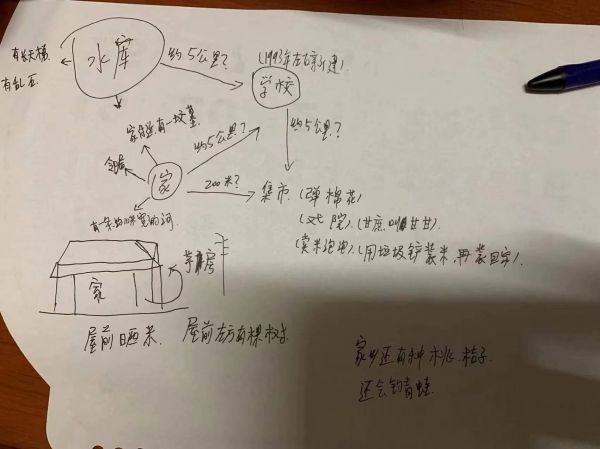 水库
有长天梯
有乱石
约5公里?
(1993年左右新建)
学校
家附近有一坟墓
约5公里?
约5公里?
邻居
家
200米?
集市
(弹棉花)
(戏院)、(甘蔗叫甘甘)
(卖米泡虫)(用垃圾铲装米,再装回家).
有一条约10米宽的河
茅房
家
屋前晒米.
屋前左方有棵树
家乡还有种桃.桔子
还会钓青蛙.